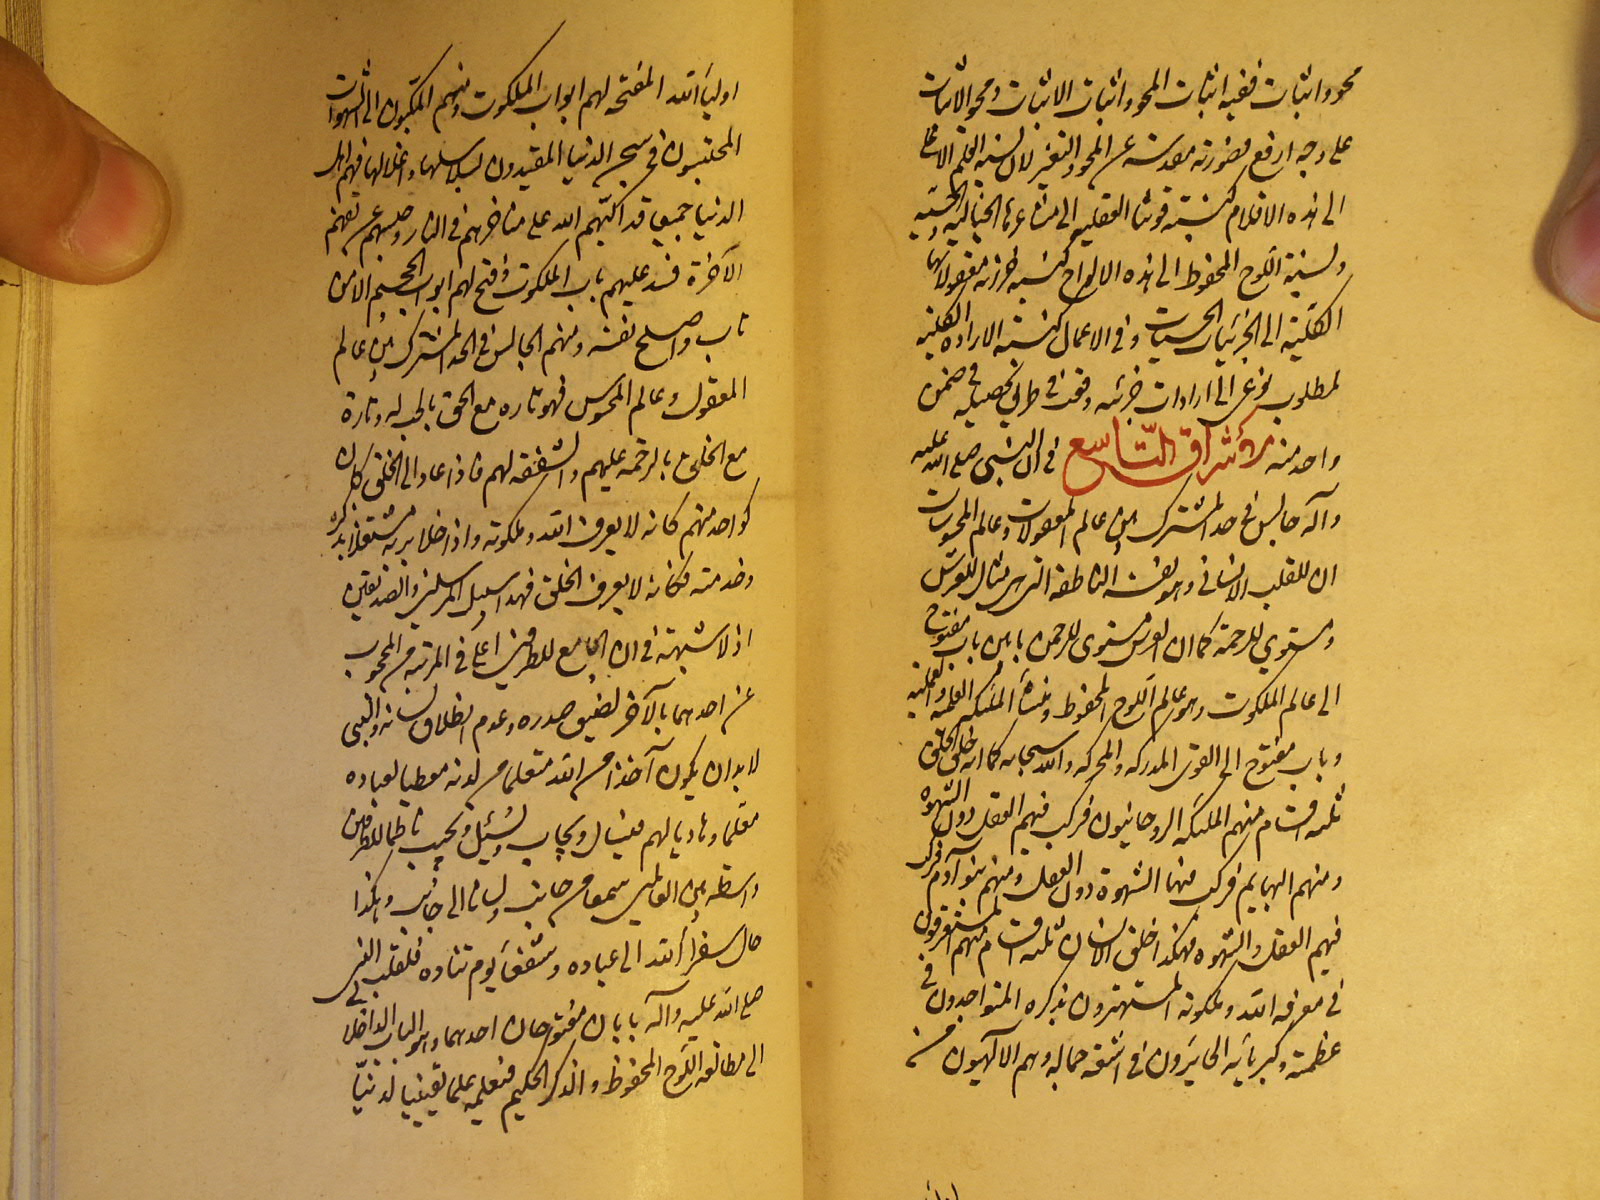 محو واثبات ففيه اثبات المحو واثبات الاثبات ومحو الاثبات
على وجه ارفع فصورته مقدسة عن المحو والتغير لان نسبة القلم الاعلى
الى هذه الاقلام كنسبة قوتنا العقلية الى مشاعرنا الخيالية والحسية
ونسبة اللوح المحفوظ الى هذه الالواح كنسبة معقولاتها
الكلية الى الجزئيات الحسيات وفى الاعمال كنسبة الارادة الكلية
لمطلوب نوعى الى ارادات جزئية وقعت فى طريق تحصيله فى ضمن
واحد منه الاشراق التاسع فى ان النبى صلى الله عليه
وآله جالس فى حد المشترك بين عالم المعقولات وعالم المحسوسات
ان للقلب الانسانى وهو نفسه الناطقة التى هى مثال للعرش
ومستوى للرحمة كما ان العرش مستوى للرحمن بابين باب مفتوح
الى عالم الملكوت وهو عالم اللوح المحفوظ ومنشأ الملئكة العلمية والعملية
وباب مفتوح الى القوى المدركة والمحركة والله سبحانه كما انه خلق الخلق
ثلثة اقسام منهم الملئكة الروحانيون فركب فيهم العقل دون الشهوة
ومنهم البهايم فركب فيها الشهوة دون العقل ومنهم بنو آدم فركب
فيهم العقل والشهوة فهكذا خلق الانسان ثلثة اقسام منهم المستغرقون
فى معرفة الله وملكوته المستهترون بذكره المتواجدون فى
عظمته وكبريائه الحايرون فى اشعة جماله وهم الالهيون من
اولياء الله المفتحه لهم ابواب الملكوت ومنهم المكبون الى الشهوات
المحتبسون فى سجن الدنيا المقيدون بسلاسلها واغلالها فهم اهل
الدنيا جميعا قد اكبهم الله على مناخرهم فى النار وحبسهم عن نعيم
الآخرة فسد عليهم باب الملكوت وفتح لهم ابواب الجحيم الا من
تاب واصلح نفسه ومنهم الجالس فى الحد المشترك بين عالم
المعقول وعالم المحسوس فهو تاره مع الحق بالحب له وتارة
مع الخلق بالرحمة عليهم والشفقة لهم فاذا عاد الى الخلق كان
كواحد منهم كانه لا يعرف الله وملكوته واذا خلا بربه مشتغلا بذكره
وخدمته فكانه لا يعرف الخلق فهذا سبيل المرسلين والصديقين
اذ لا شبهة فى ان الجامع للطرفين اعلى فى المرتبة من المحجوب
عن احدهما بالآخر لضيق صدره وعدم انطلاق لسانه والنبى
لا بد ان يكون آخذا من الله متعلما من لدنه معطيا لعباده
معلما وهاديا لهم فيسال ويجاب ويسئل ويجيب ناظما للطرفين
واسطة بين العالمين سمعا من جانب ولسانا الى جانب وهكذا
حال سفراء الله الى عباده وشفعاء يوم تناده فلقلب النبى
صلى الله عليه وآله بابان مفتوحان احدهما وهو الباب الداخلانى
الى مطالعة اللوح المحفوظ والذكر الحكيم فيعلمه علما يقينيا لدنيا